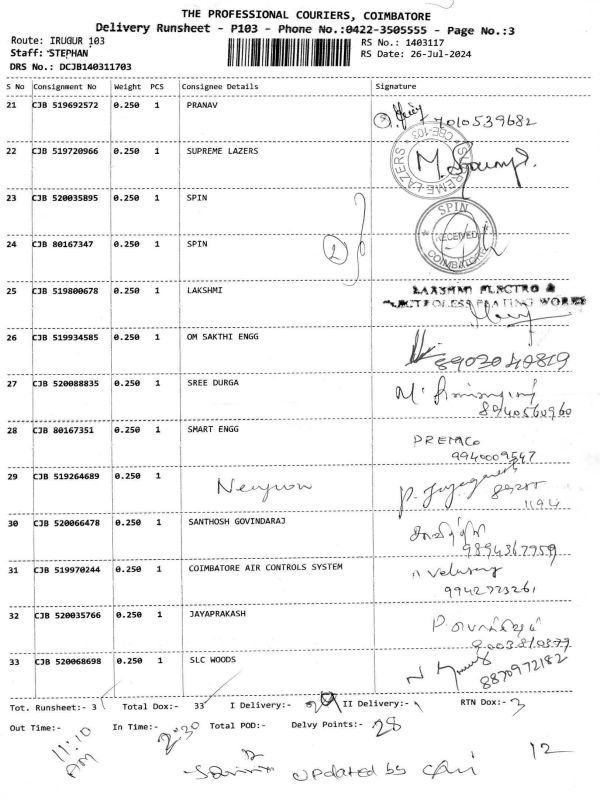 THE PROFESSIONAL COURIERS, COIMBATORE
Delivery Runsheet - P103 - Phone No.:0422-3505555 - Page No.:3
Route: IRUGUR 103
RS No.: 1403117
Staff: STEPHAN
RS Date: 26-Jul-2024
DRS No.: DCJB140311703
S No Consignment No Weight PCS Consignee Details Signature
21 CJB 519692572 0.250 1 PRANAV
7010539682
22 CJB 519720966 0.250 1 SUPREME LAZERS
SUPREME LAZERS CBE-103
23 CJB 520035895 0.250 1 SPIN
SPIN
24 CJB 80167347 0.250 1 SPIN 2
RECEIVED
COIMBATORE
25 CJB 519800678 0.250 1 LAKSHMI LAKSHMI ELECTRO &
ELECTROLESS PLATING WORKS
26 CJB 519934585 0.250 1 OM SAKTHI ENGG
8903040819
27 CJB 520088835 0.250 1 SREE DURGA
8940560960
28 CJB 80167351 0.250 1 SMART ENGG
9940009547
29 CJB 519264689 0.250
1194
30 CJB 520066478 0.250 1 SANTHOSH GOVINDARAJ
9894367959
31 CJB 519970244 0.250 1 COIMBATORE AIR CONTROLS SYSTEM
9942723261
32 CJB 520035766 0.250 1 JAYAPRAKASH
33 CJB 520068698 0.250 1 SLC WOODS
8870972182
Tot. Runsheet:- 3 Total Dox:- 33 I Delivery:- II Delivery:- RTN Dox:- 3
Out Time:- 11:10 AM In Time:- 2:30 Total POD:- Delvy Points:- 28
12
updated by